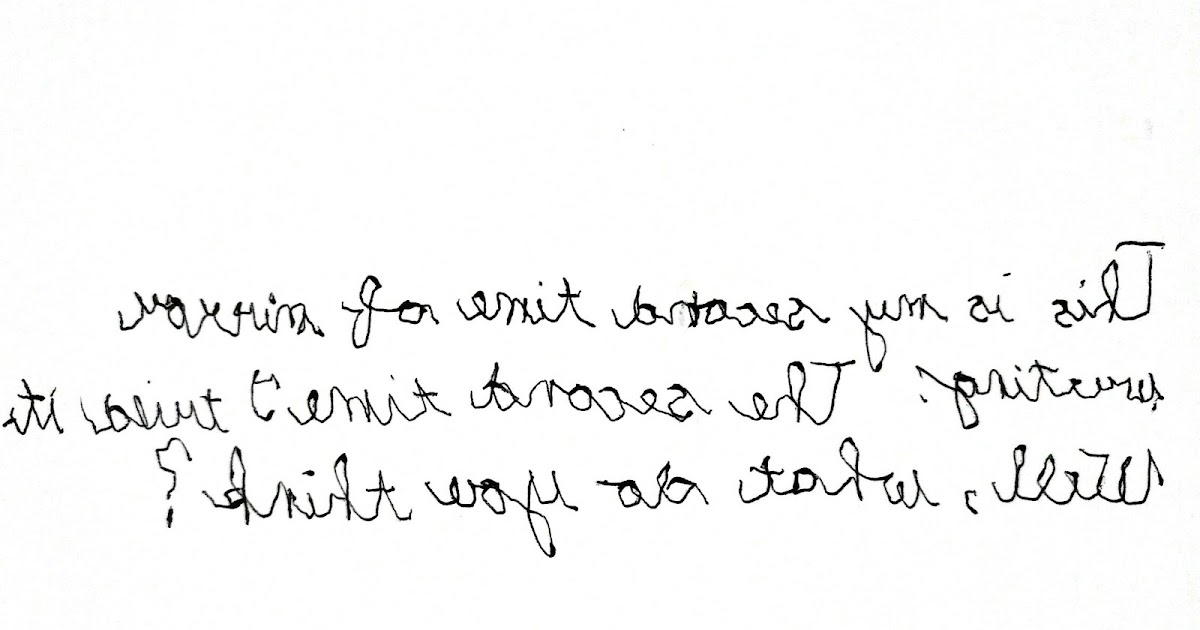 This is my second time of mirror
writing. The second time I tried it.
Well, what do you think?